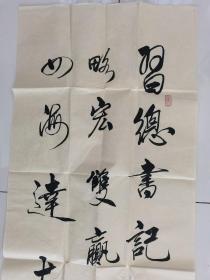 習總書記
略宏雙贏
如海達